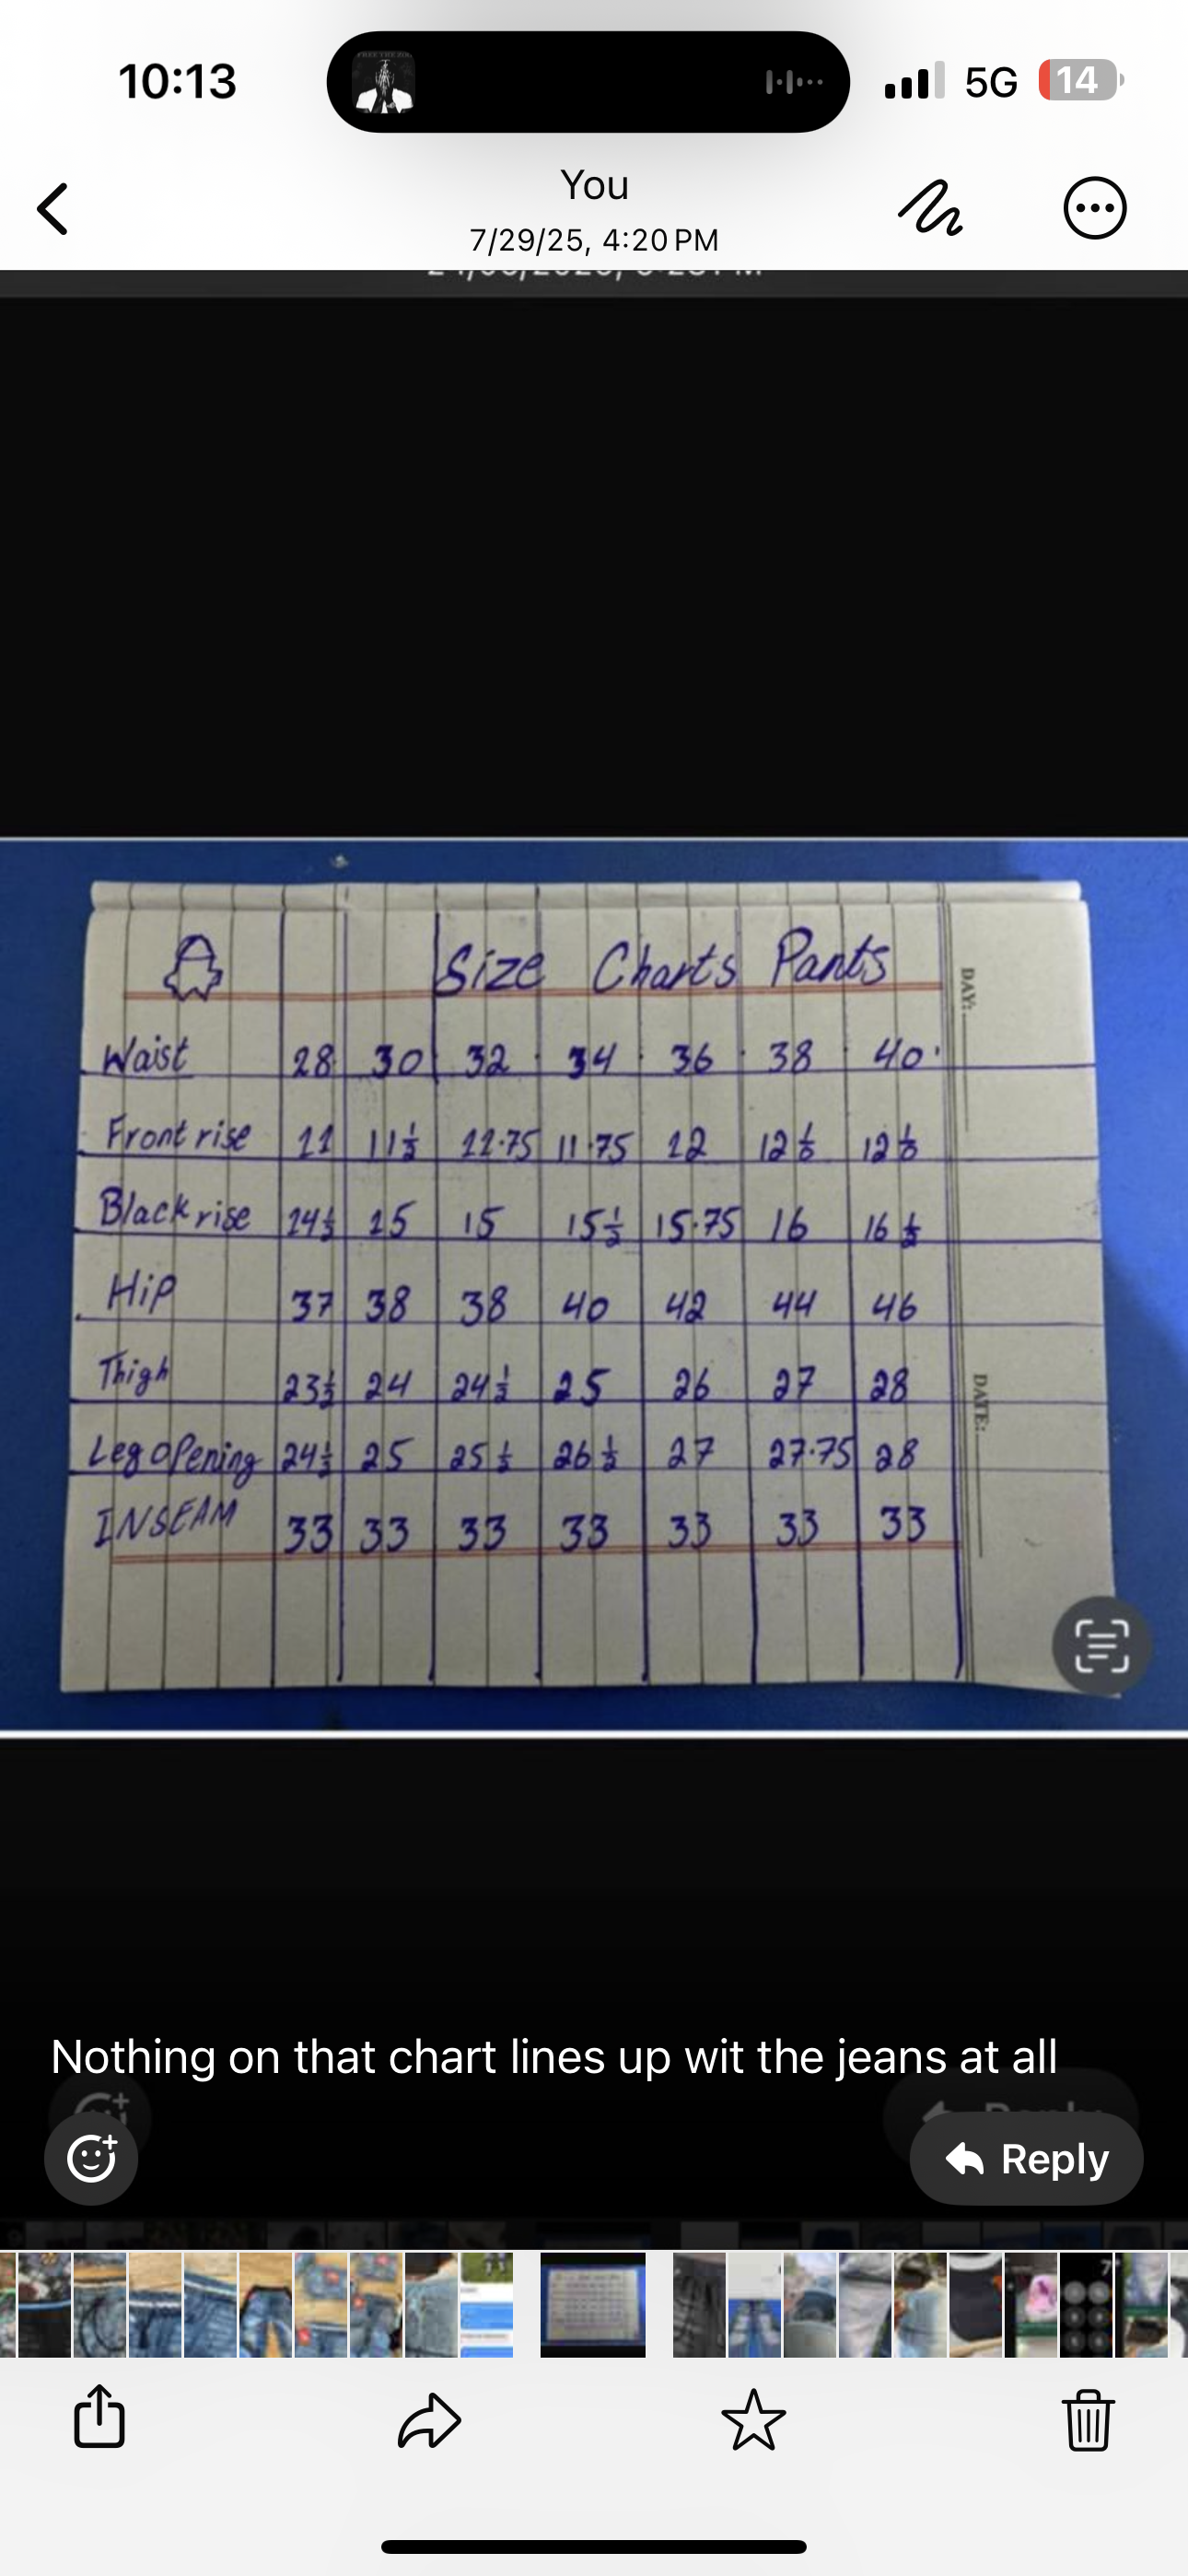 10:13
5G
14
You
7/29/25, 4:20 PM
Size Charts Pants
DAY:
Waist 28 30 32 34 36 38 40
Front rise 11 11½ 11.75 11.75 12 12½ 12½
Black rise 14½ 15 15 15½ 15.75 16 16½
Hip 37 38 38 40 42 44 46
Thigh 23½ 24 24½ 25 26 27 28
DATE:
Leg opening 24½ 25 25½ 26½ 27 27.75 28
INSEAM 33 33 33 33 33 33 33
Nothing on that chart lines up wit the jeans at all
Reply